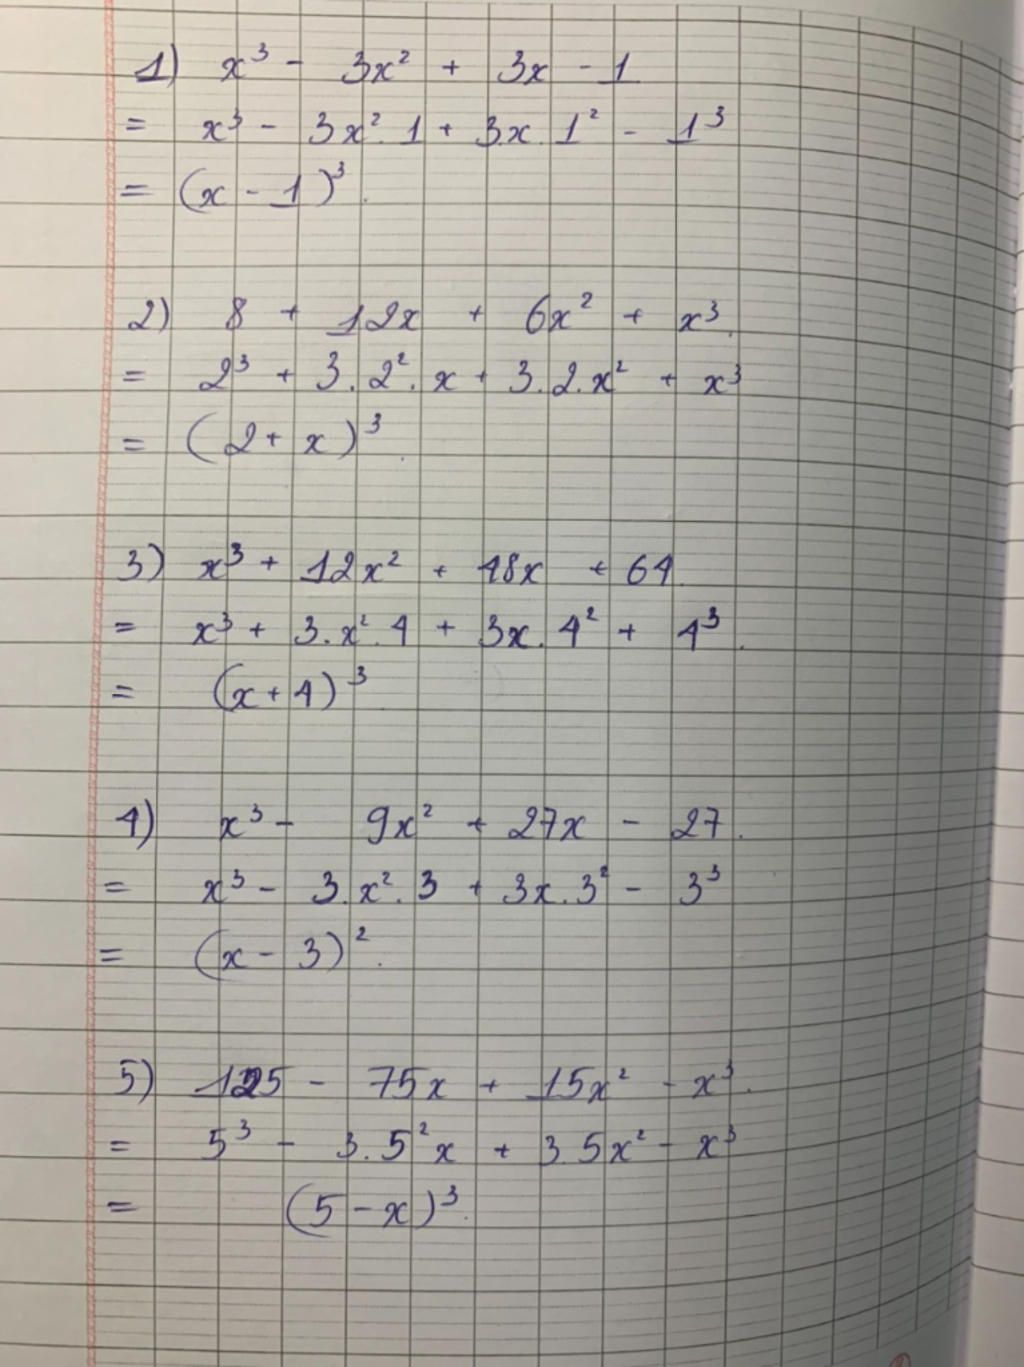 1) x³ - 3x² + 3x - 1
= x³ - 3x².1 + 3x.1² - 1³
= (x - 1)³.
2) 8 + 12x + 6x² + x³.
= 2³ + 3.2².x + 3.2.x² + x³
= (2 + x)³.
3) x³ + 12x² + 48x + 64.
= x³ + 3.x².4 + 3x.4² + 4³.
= (x + 4)³
4) x³ - 9x² + 27x - 27.
= x³ - 3.x².3 + 3x.3² - 3³
= (x - 3)².
5) 125 - 75x + 15x² - x³.
= 5³ - 3.5²x + 3.5x² - x³
= (5 - x)³.